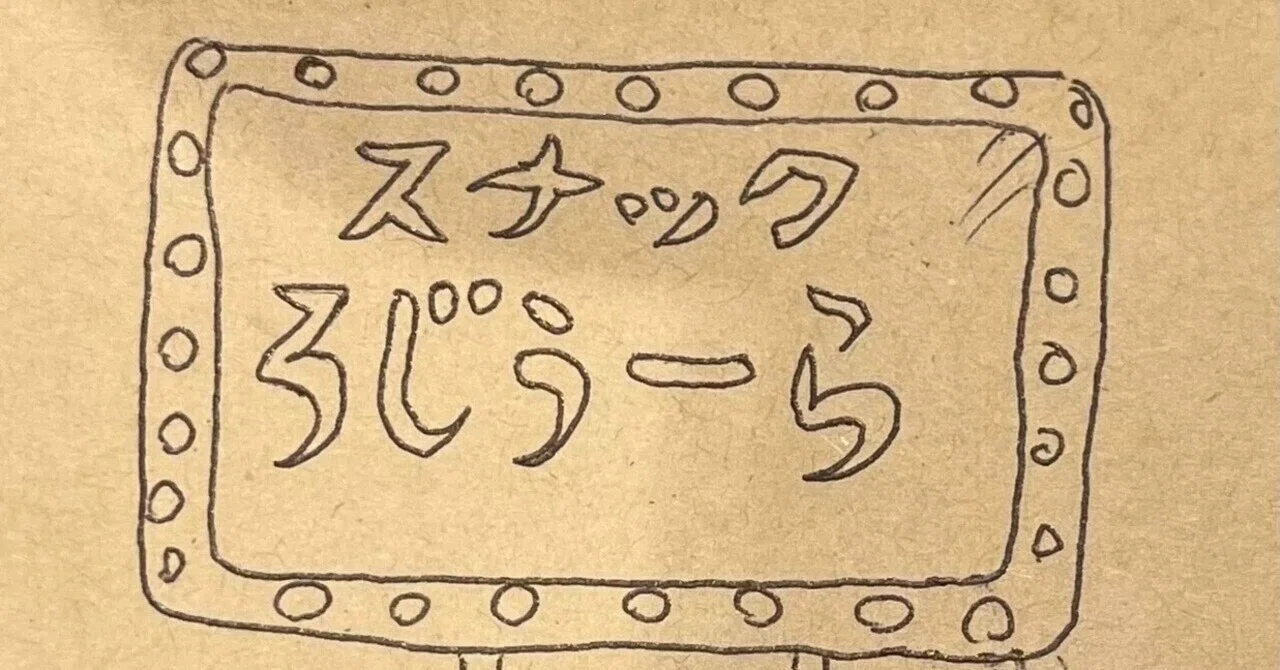 スナック
ろじうーら